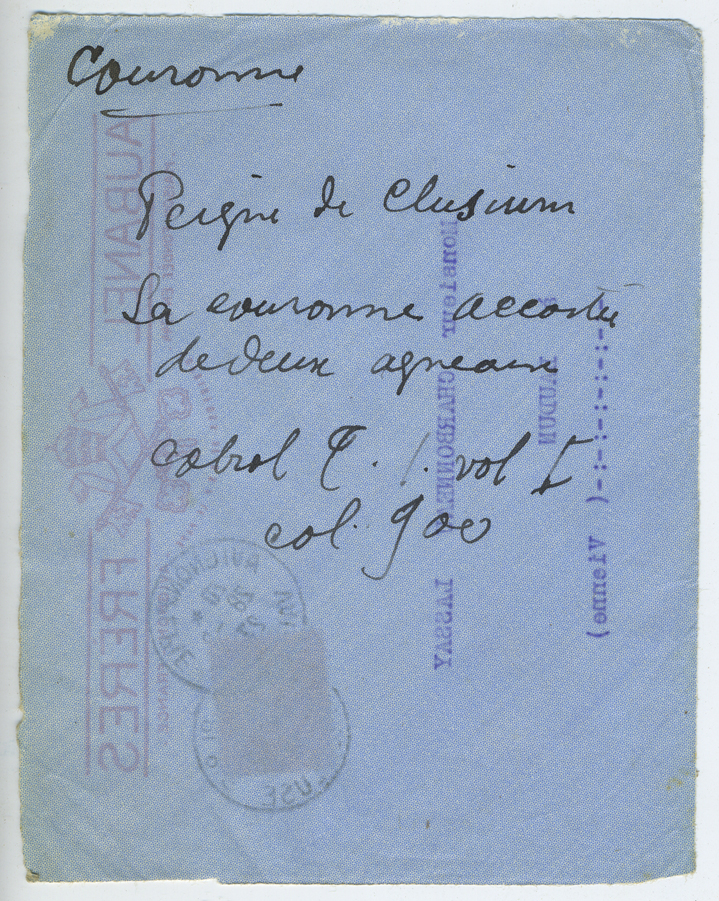 Couronne
Peigne de Clusium
La couronne accostée
de deux agneaux
Cabrol T. 1. vol I
col. 900
AUBANEL
FRERES
Monsieur CHARBONNEAU LASSAY
LOUDUN
(-:-:-:-:-:- Vienne)
AVIGNON